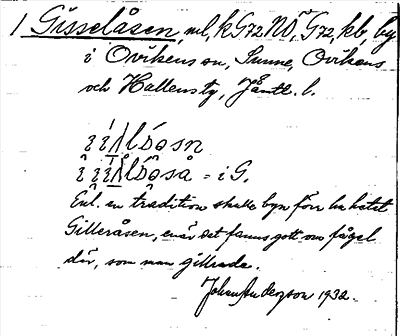 1 Gisselåsen, ml, k G72 NO, G72, kb, by
i Ovikens sn, Sunne, Ovikens
och Hallens ty, Jämtl. l.
= i G.
Enl. en tradition skulle byn förr ha hetat
Gilleråsen, enär det fanns gott om fågel
där, som man gillrade.
Johan Anderzson 1932.